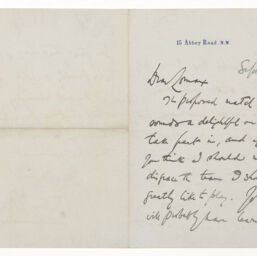 15 Abbey Road. N.W.
Dear Lomax
The proposed match
sounds a delightful
take part in, and
you think I should
disgrace the team I
greatly like to play.
probably have